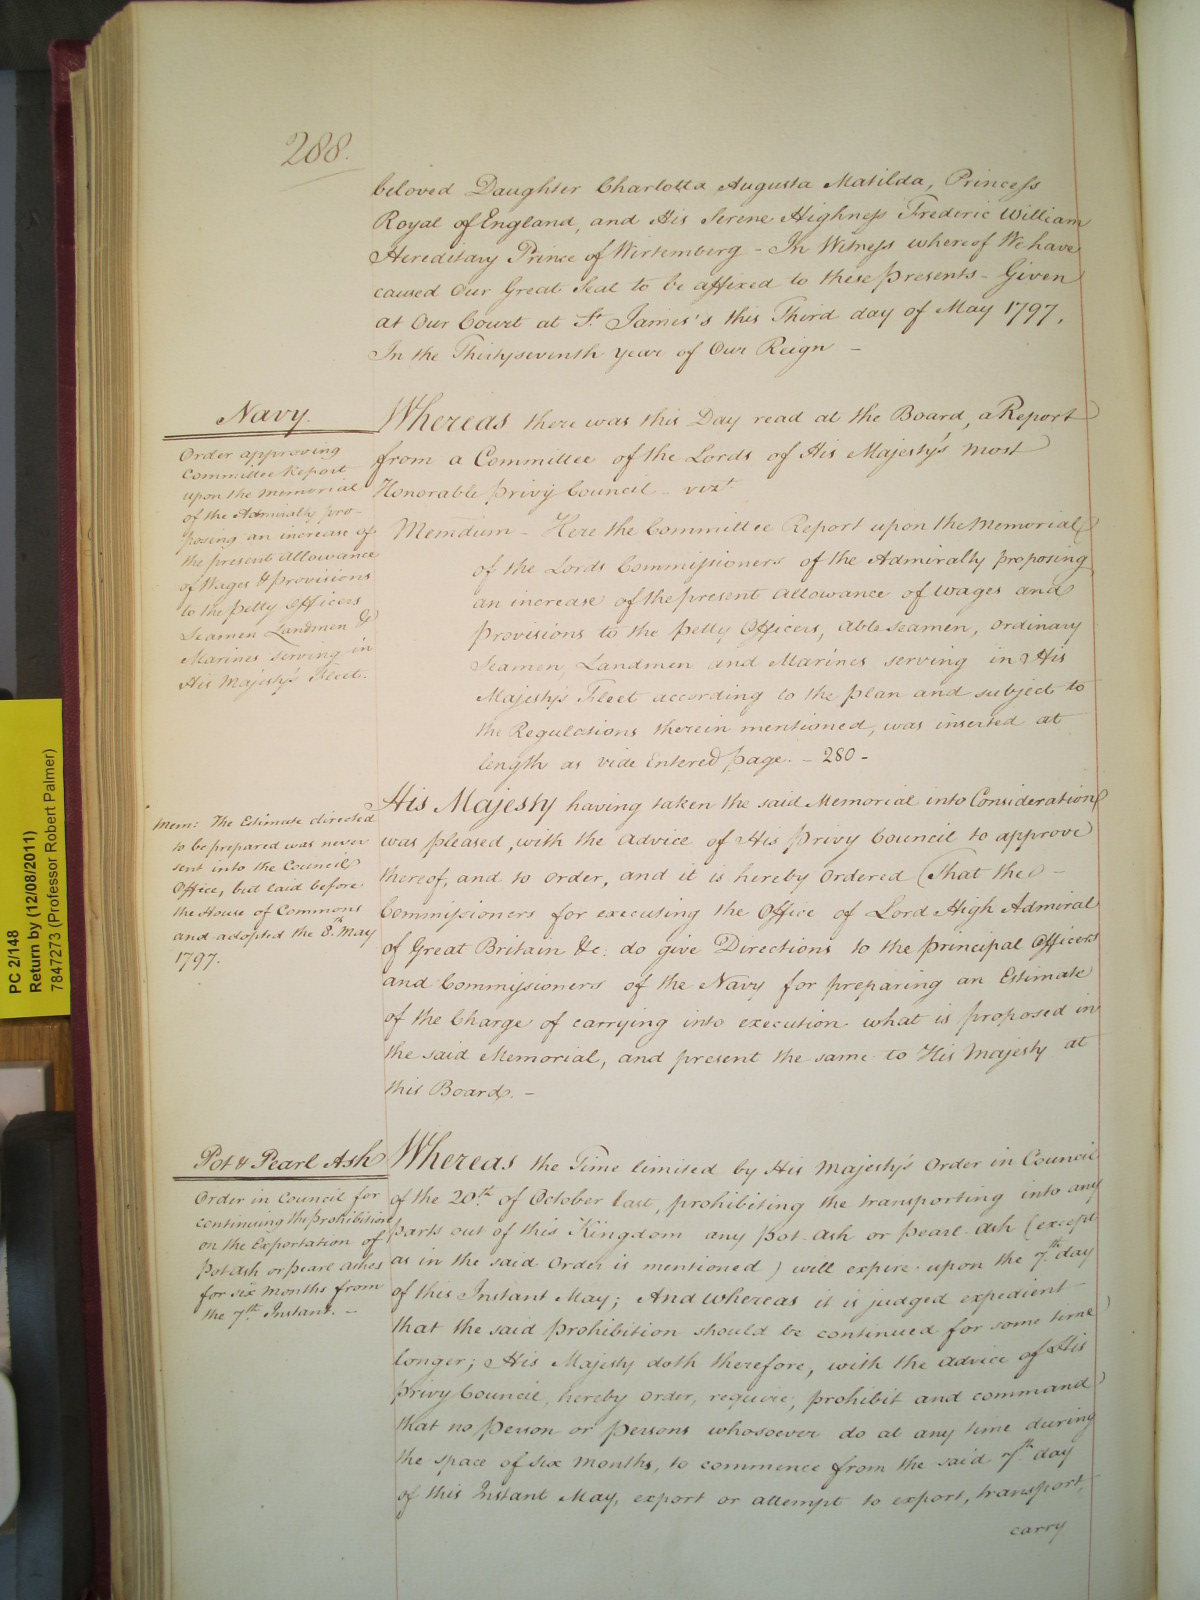 288.
beloved Daughter Charlotta Augusta Matilda, Princess
Royal of England, and His Serene Highness Frederic William
Hereditary Prine of Wirtemberg - In Witness whereof We have
caused Our Great Seal to be affixed to these presents - Given
at Our Court at St. James's this Third day of May 1797,
In the Thirtyseventh year of Our Reign -
Navy.
Order approving
Committee Report
upon the Memorial
of the Admiralty pro-
posing an increase of
the present Allowance
of Wages & provisions
to the petty Officers
Seamen Landmen &
Marines serving in
His Majesty's Fleet.
Whereas there was this Day read at the Board, a Report
from a Committee of the Lords of His Majesty's most
Honorable privy Council - vizt.
Memdum - Here the Committee Report upon the Memorial
of the Lords Commissioners of the Admiralty proposing
an increase of the present Allowance of Wages and
provisions to the petty Officers, Able Seamen, ordinary
Seamen, Landmen and Marines serving in His
Majesty's Fleet according to the plan and subject to
the Regulations therein mentioned, was inserted at
length as vide Entered page. - 280 -
Mem: The Estimate directed
to be prepared was never
sent into the Council
Office, but laid before
the House of Commons
and adopted the 8th. May
1797.
His Majesty having taken the said Memorial into Consideration
was pleased, with the advice of His privy Council to approve
thereof, and to order, and it is hereby Ordered (That the -
Commissioners for executing the Office of Lord High Admiral
of Great Britain &c. do give Directions to the principal Officers
and Commissioners of the Navy for preparing an Estimate
of the Charge of carrying into execution what is proposed in
the said Memorial, and present the same to His Majesty at
this Board. -
Pot & Pearl Ash
Order in Council for
continuing the prohibition
on the Exportation of
Pot Ash or pearl Ashes
for six Months from
the 7th. Instant. -
Whereas the Time limited by His Majesty's Order in Council
of the 20th. of October last, prohibiting the transporting into any
parts out of this Kingdom any pot-ash or pearl-ash (except
as in the said Order is mentioned) will expire upon the 7th. day
of this Instant May; And whereas it is judged expedient
that the said prohibition should be continued for some time
longer; His Majesty doth therefore, with the advice of His
privy Council, hereby order, require, prohibit and command
that no person or persons whosoever do at any time during
the space of six Months, to commence from the said 7th. day
of this Instant May, export or attempt to export, transport,
carry
PC 2/148
Return by (12/08/2011)
7847273 (Professor Robert Palmer)